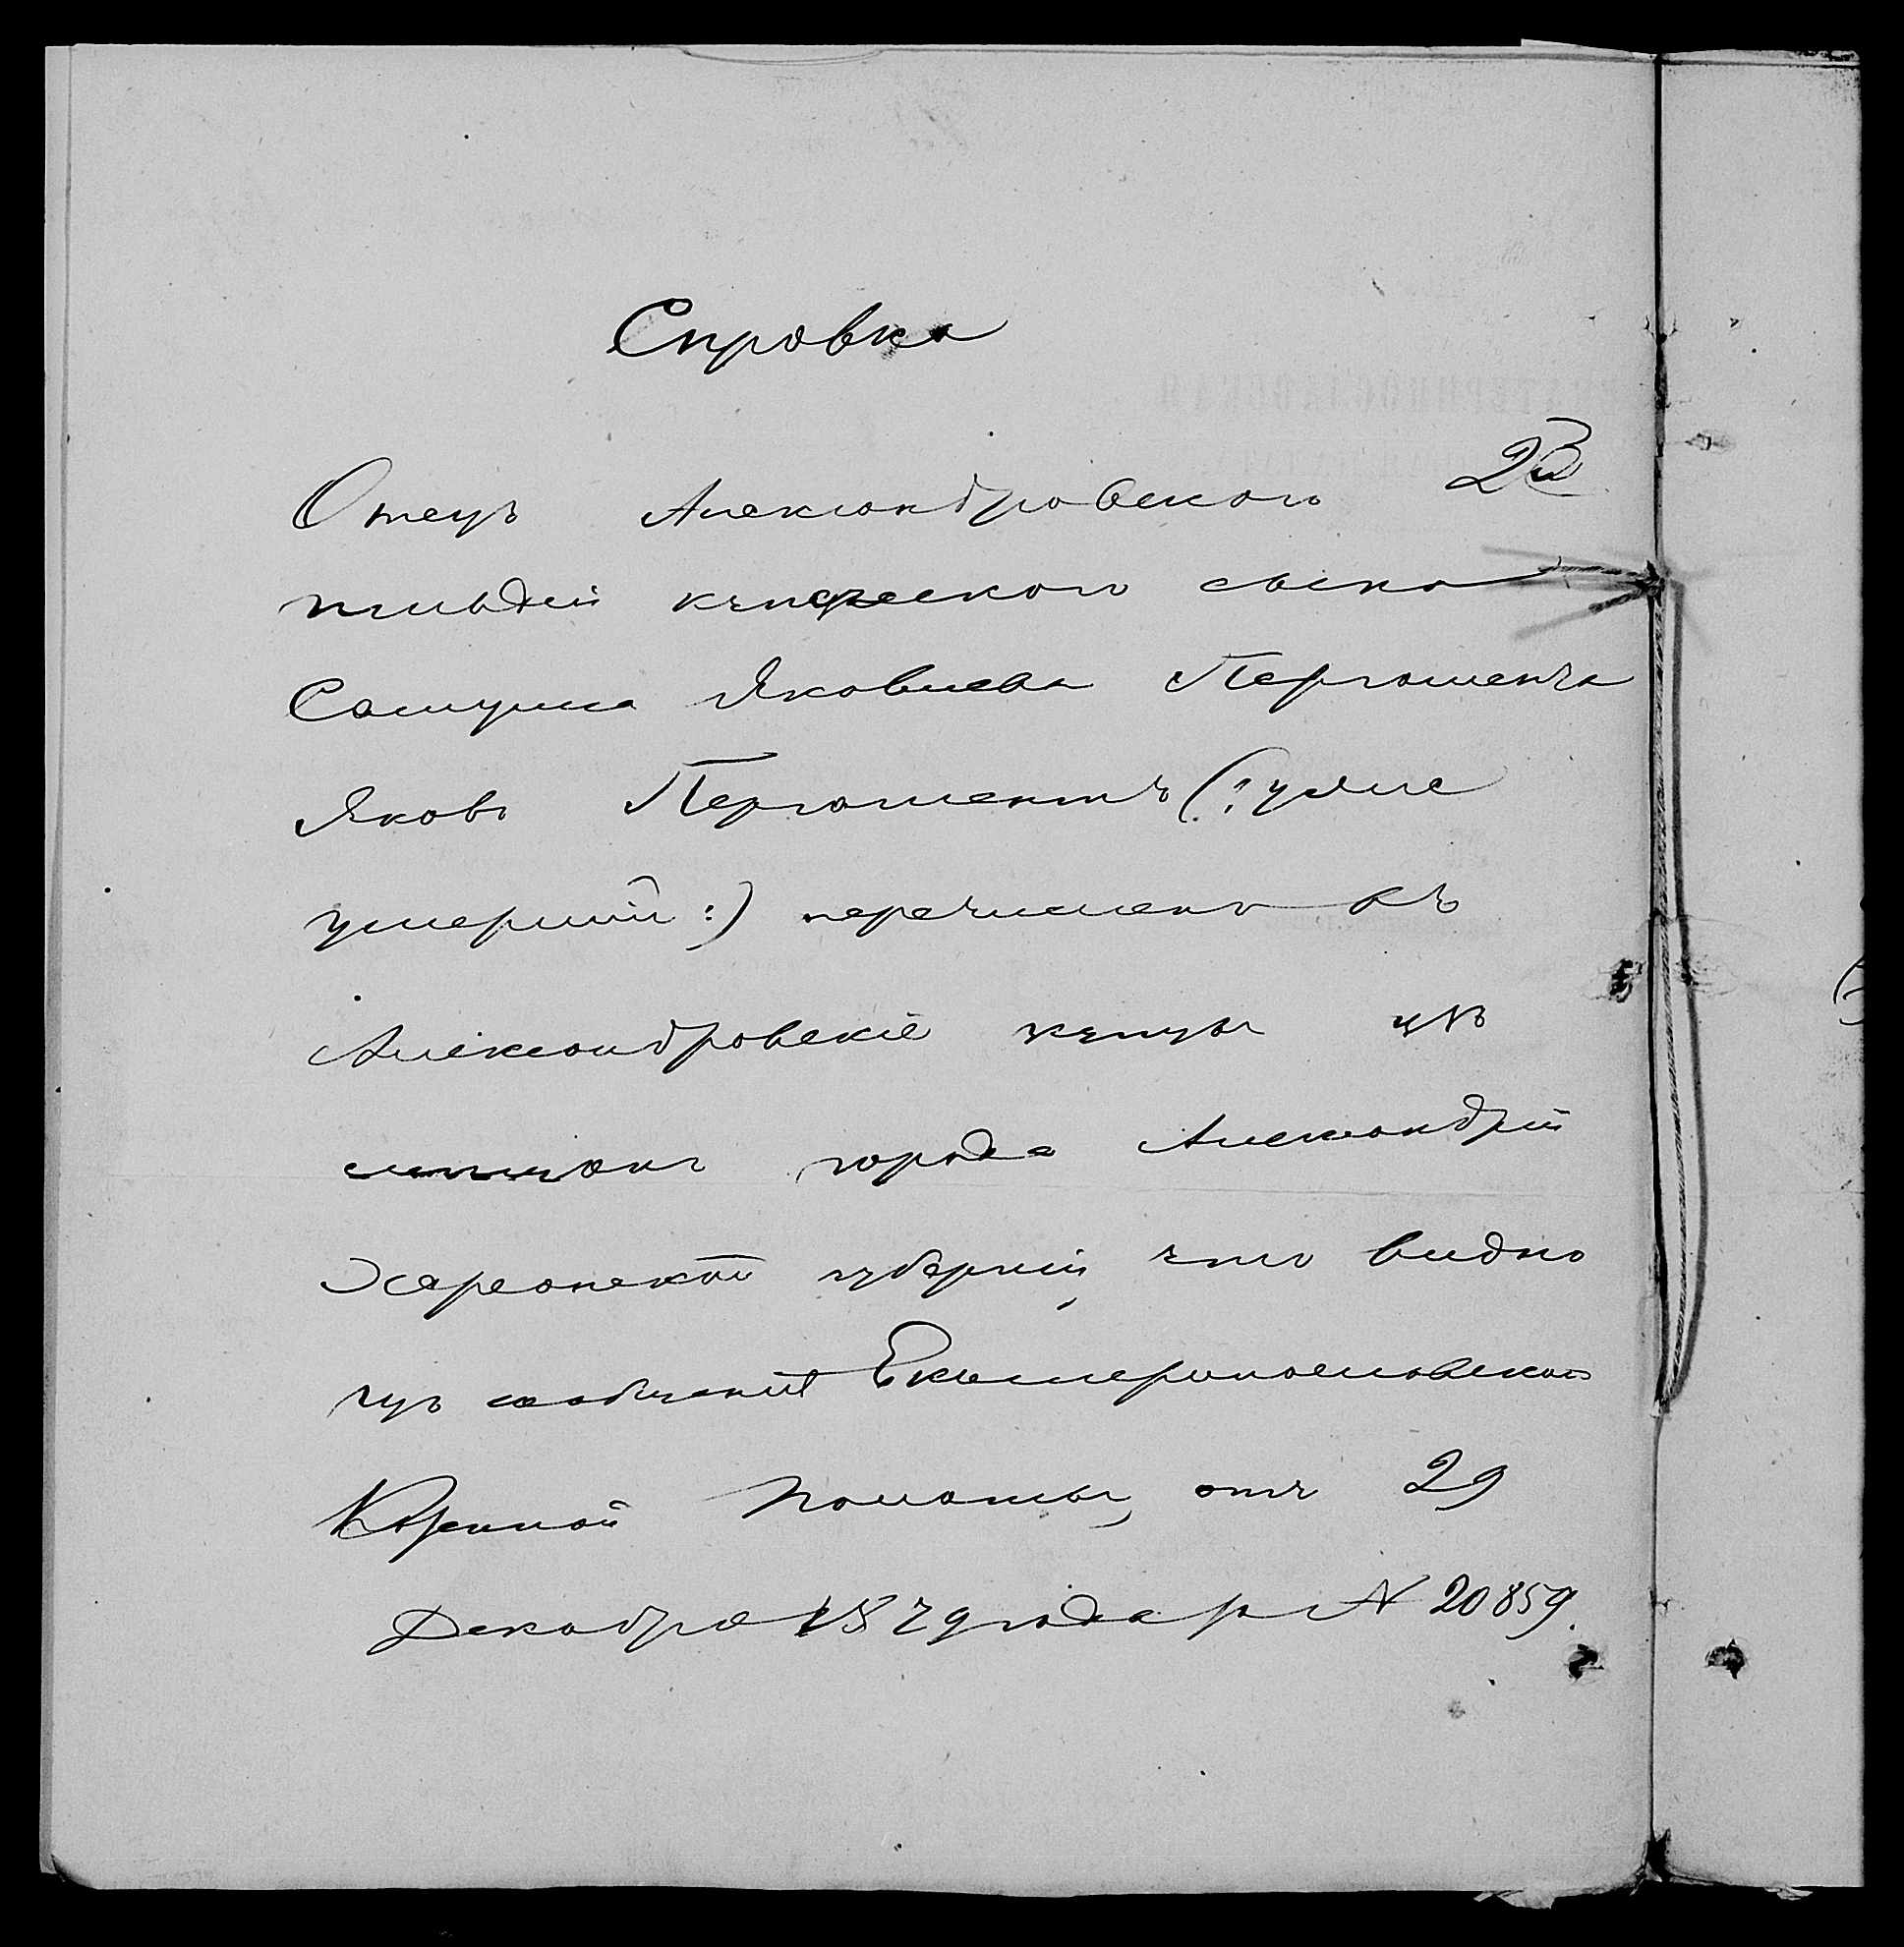 Справка
Отецъ Александровского 2й
гильдіи купеческого сына
Самуила Яковлева Пергамента
Яковъ Пергаментъ (: уже
умершій :) перечисленъ въ
Александровскіе купцы изъ
мѣщанъ города Александріи
Херсонской губерніи, что видно
изъ сообщенія Екатеринославской
Казенной Палаты, отъ 29
Декабря 1879 года за № 20859.